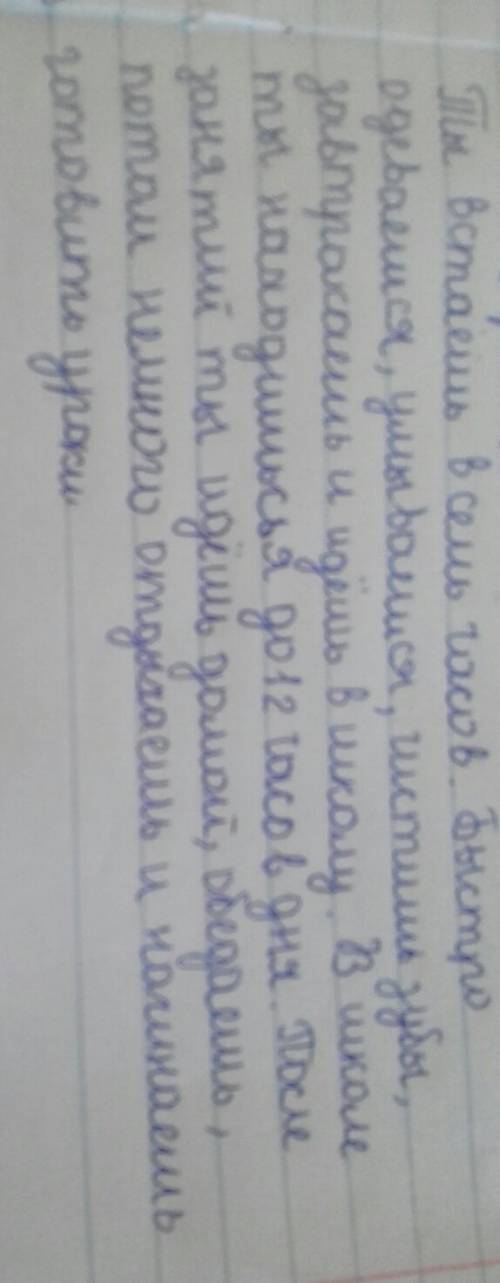 Ты встаёшь в семь часов. Быстро
одеваешся, умываешся, чистишь зубы,
завтракаешь и идёшь в школу. В школе
ты находишьсья до 12 часов дня. После
занятий ты идёшь домой, обедаешь,
потом немного отдыхаешь и начинаешь
готовить уроки